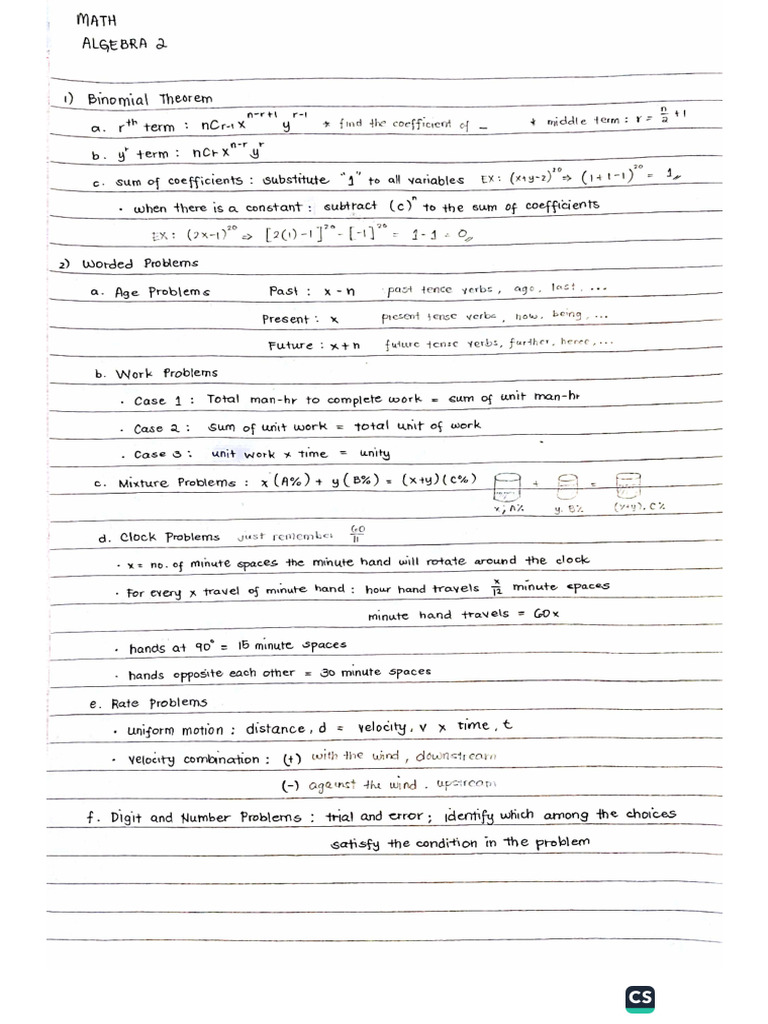 MATH
ALGEBRA 2
1) Binomial Theorem
a. rth term : nCr-1 x^n-r+1 y^r-1 * find the coefficient of _ * middle term : r = n/2 + 1
b. y^r term : nCr x^n-r y^r
c. sum of coefficients : substitute "1" to all variables EX: (x+y-2)^20 ⇒ (1+1-1)^20 = 1
• when there is a constant : subtract (c)^n to the sum of coefficients
EX: (2x-1)^20 ⇒ [2(1)-1]^20 - [-1]^20 = 1-1 = 0
2) Worded Problems
a. Age Problems Past : x-n past tence verbs, ago, last, ...
Present : x present tense verbs, now, being, ...
Future : x+n future tense verbs, further, hence, ...
b. Work Problems
• Case 1 : Total man-hr to complete work = sum of unit man-hr
• Case 2 : sum of unit work = total unit of work
• Case 3 : unit work x time = unity
c. Mixture Problems : x(A%) + y(B%) = (x+y)(C%) + =
x, A% y. B% (x+y), C%
d. Clock Problems just remember 60/11
• x = no. of minute spaces the minute hand will rotate around the clock
• For every x travel of minute hand : hour hand travels x/12 minute spaces
minute hand travels = 60x
• hands at 90° = 15 minute spaces
• hands opposite each other = 30 minute spaces
e. Rate Problems
• uniform motion : distance, d = velocity, v x time, t
• velocity combination : (+) with the wind, downstream
(-) against the wind. upstream
f. Digit and Number Problems : trial and error; identify which among the choices
satisfy the condition in the problem
CS